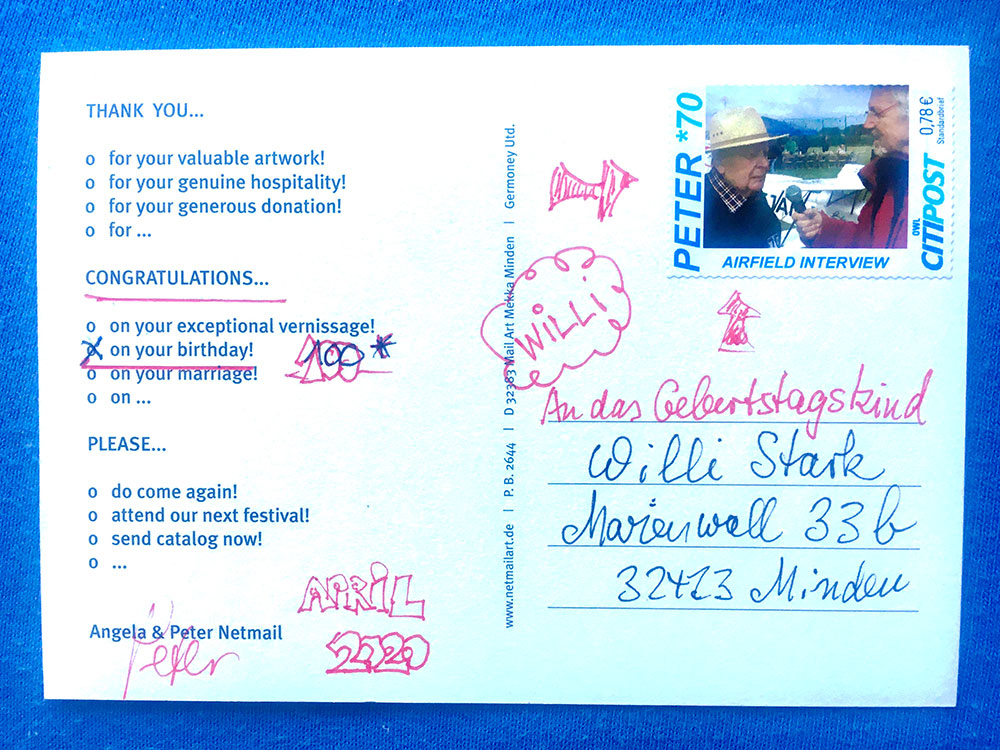 THANK YOU...
o for your valuable artwork!
o for your genuine hospitality!
o for your generous donation!
o for ...
CONGRATULATIONS...
o on your exceptional vernissage!
x on your birthday! 100 *
o on your marriage!
o on ...
PLEASE...
o do come again!
o attend our next festival!
o send catalog now!
o ...
Angela & Peter Netmail
Peter
APRIL
2020
www.netmailart.de | P. B. 2644 | D 32383 Mail Art Mekka Minden | Germoney Utd.
WILLI
PETER *70
AIRFIELD INTERVIEW
0,78 €
Standardbrief
OWL
CITIPOST
An das Geburtstagskind
Willi Stark
Marienwall 33b
32423 Minden